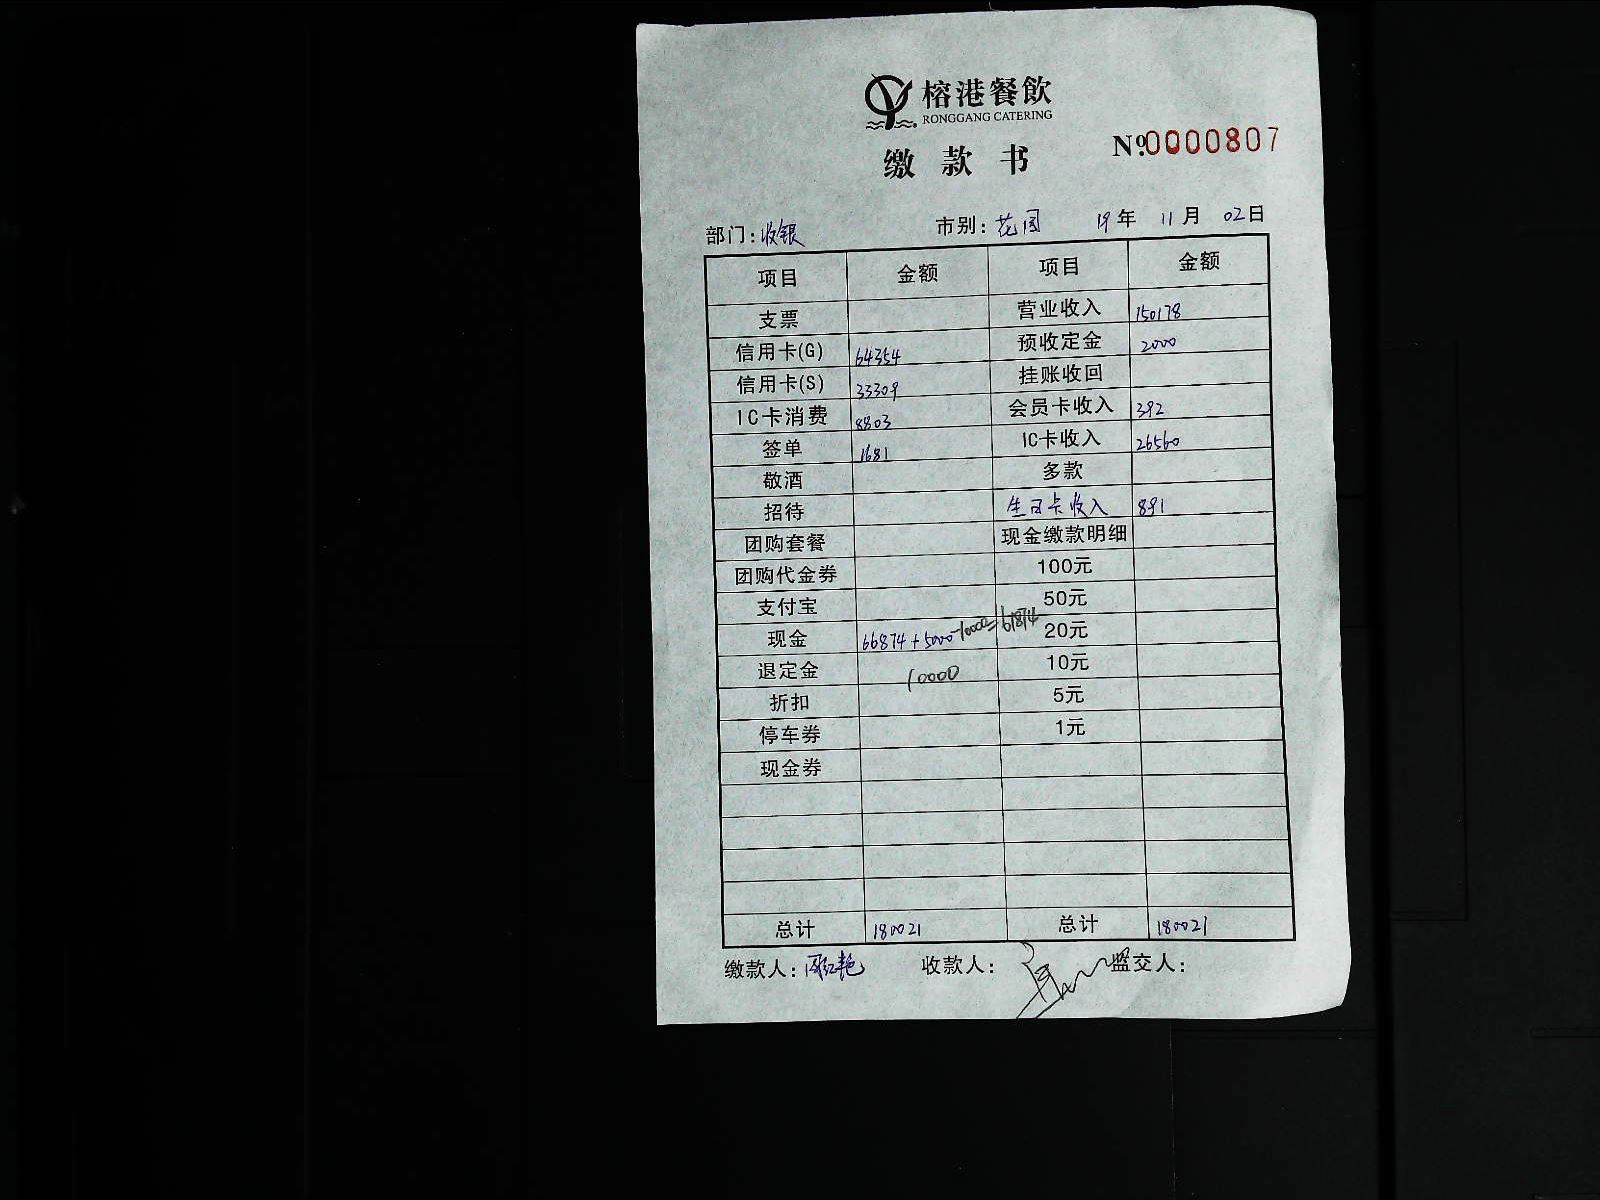 榕港餐飲
RONGGANG CATERING
缴款书
Nº 0000807
部门:收银 市别:花园 19年 11月 02日
项目 金额 项目 金额
支票 营业收入 150178
信用卡(G) 64354 预收定金 2000
信用卡(S) 33309 挂账收回
IC卡消费 8803 会员卡收入 392
签单 1681 IC卡收入 26560
敬酒 多款
招待 生日卡收入 891
团购套餐 现金缴款明细
团购代金券 100元
支付宝 50元
现金 66874+5000-10000=61874 20元
退定金 10000 10元
折扣 5元
停车券 1元
现金券
总计 180021 总计 180021
缴款人: 收款人: 监交人: